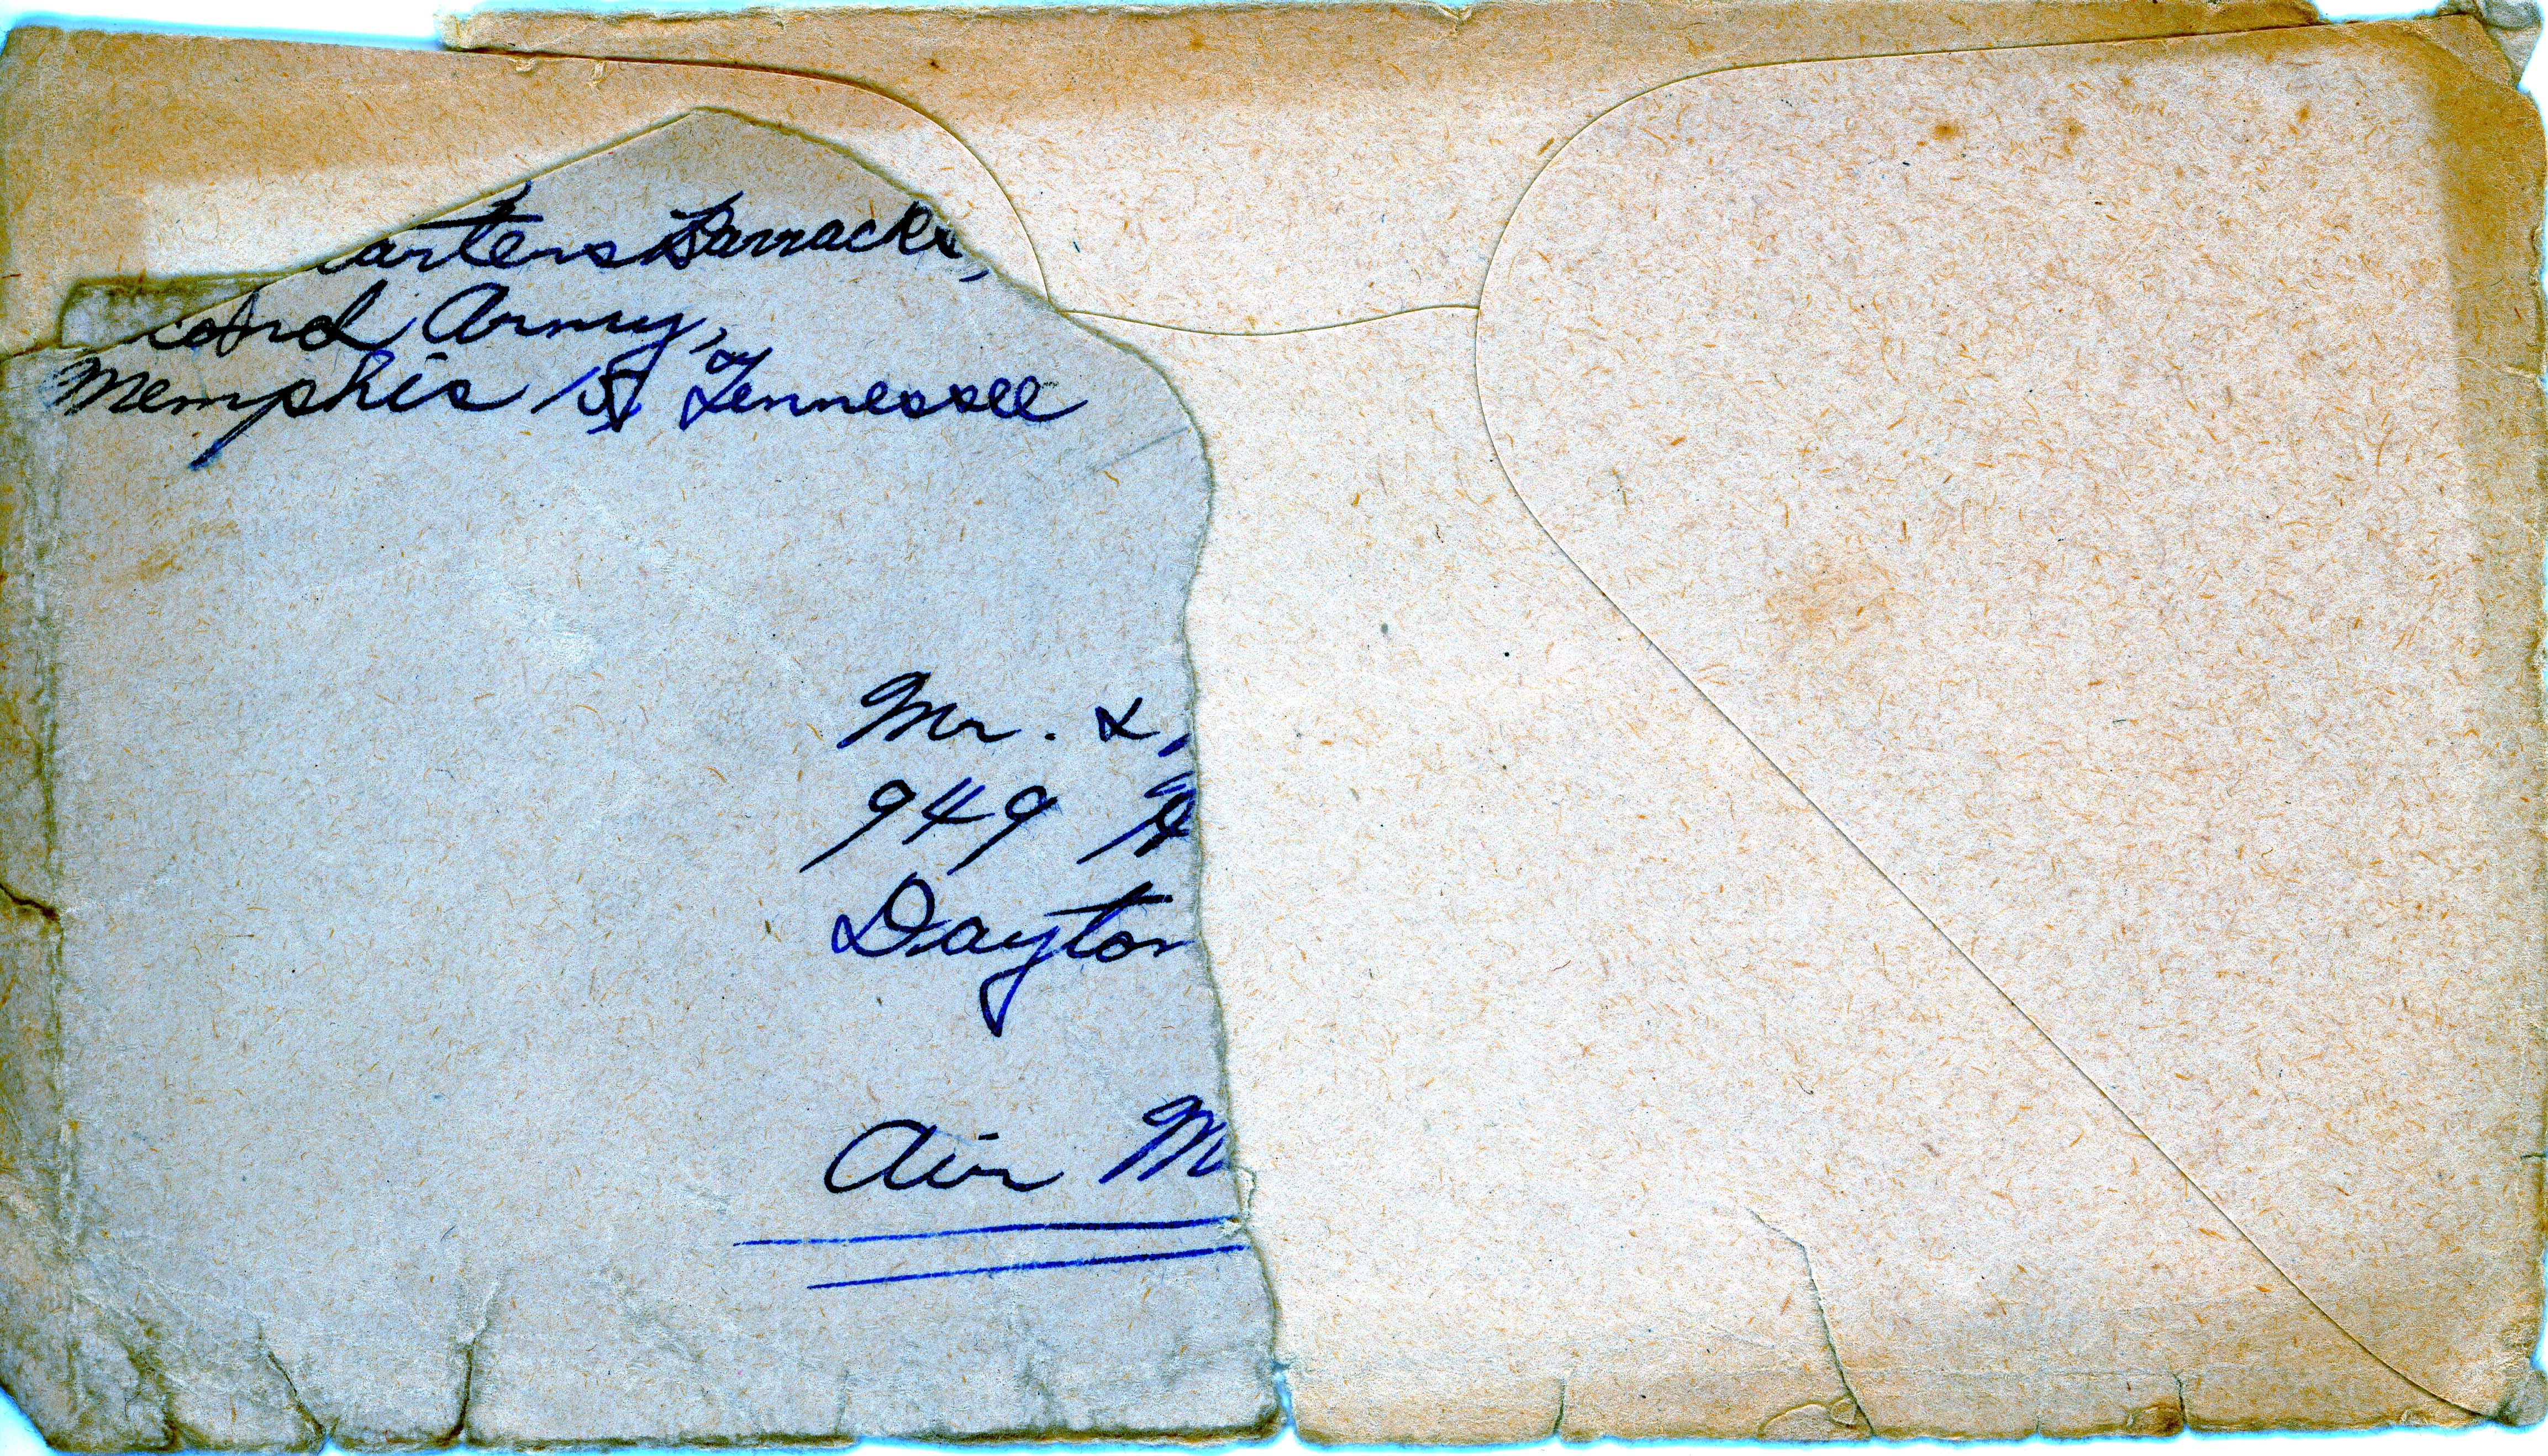 arters Barracks,
cond Army,
Memphis 15, Tennessee
Mr. &
949
Dayton
Air M